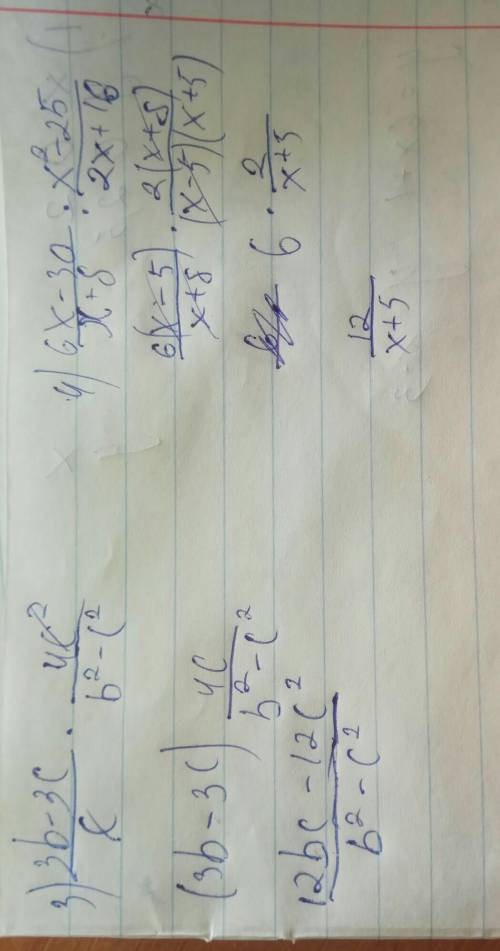 3) \frac{3b-3c}{c} \cdot \frac{4c^2}{b^2-c^2}
(3b-3c) \frac{4c}{b^2-c^2}
\frac{12bc-12c^2}{b^2-c^2}
4) \frac{6x-30}{x+8} : \frac{x^2-25}{2x+16}
\frac{6(x-5)}{x+8} \cdot \frac{2(x+8)}{(x-5)(x+5)}
6 \cdot \frac{2}{x+5}
\frac{12}{x+5}